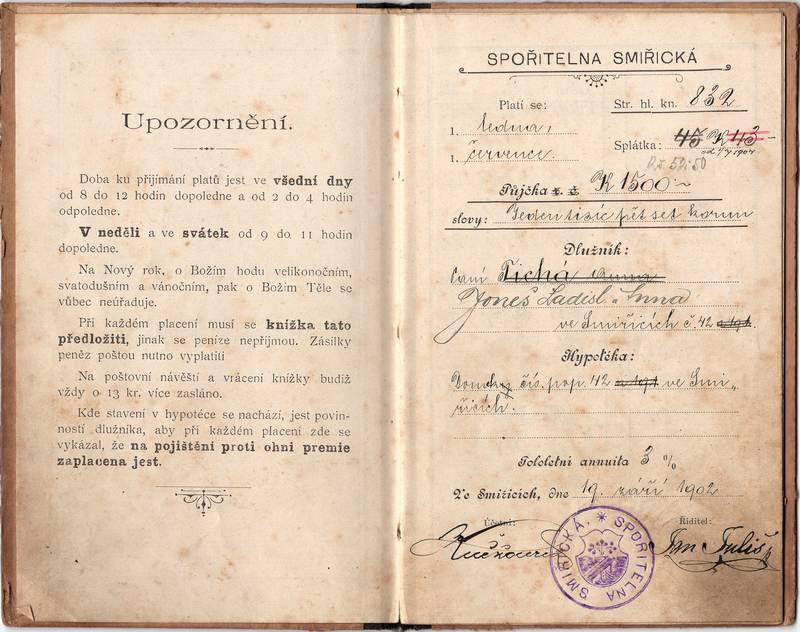 Upozornění.
Doba ku přijímání platů jest ve všední dny
od 8 do 12 hodin dopoledne a od 2 do 4 hodin
odpoledne.
V neděli a ve svátek od 9 do 11 hodin
dopoledne.
Na Nový rok, o Božím hodu velikonočním,
svatodušním a vánočním, pak o Božím Těle se
vůbec neúřaduje.
Při každém placení musí se knížka tato
předložiti, jinak se peníze nepřijmou. Zásilky
peněz poštou nutno vyplatiti
Na poštovní návěští a vrácení knížky budiž
vždy o 13 kr. více zasláno.
Kde stavení v hypotéce se nachází, jest povin-
ností dlužníka, aby při každém placení zde se
vykázal, že na pojištění proti ohni premie
zaplacena jest.
SPOŘITELNA SMIŘICKÁ
Platí se:
Str. hl. kn. 832
1. ledna,
1. července.
Splátka: 45 K 43
od 1/7 1904
Půjčka K 1500
slovy: Jeden tisíc pět set korun
Dlužník:
paní Tichá Anna
Joneš Ladisl. a Anna
ve Smiřicích č. 42
Hypotéka:
Domek čís. pop. 42 ve Smi„
řicích.
Pololetní annuita 3 %
Ve Smiřicích, dne 19. září 1902
Účetní:
Ředitel:
SPOŘITELNA SMIŘICKÁ